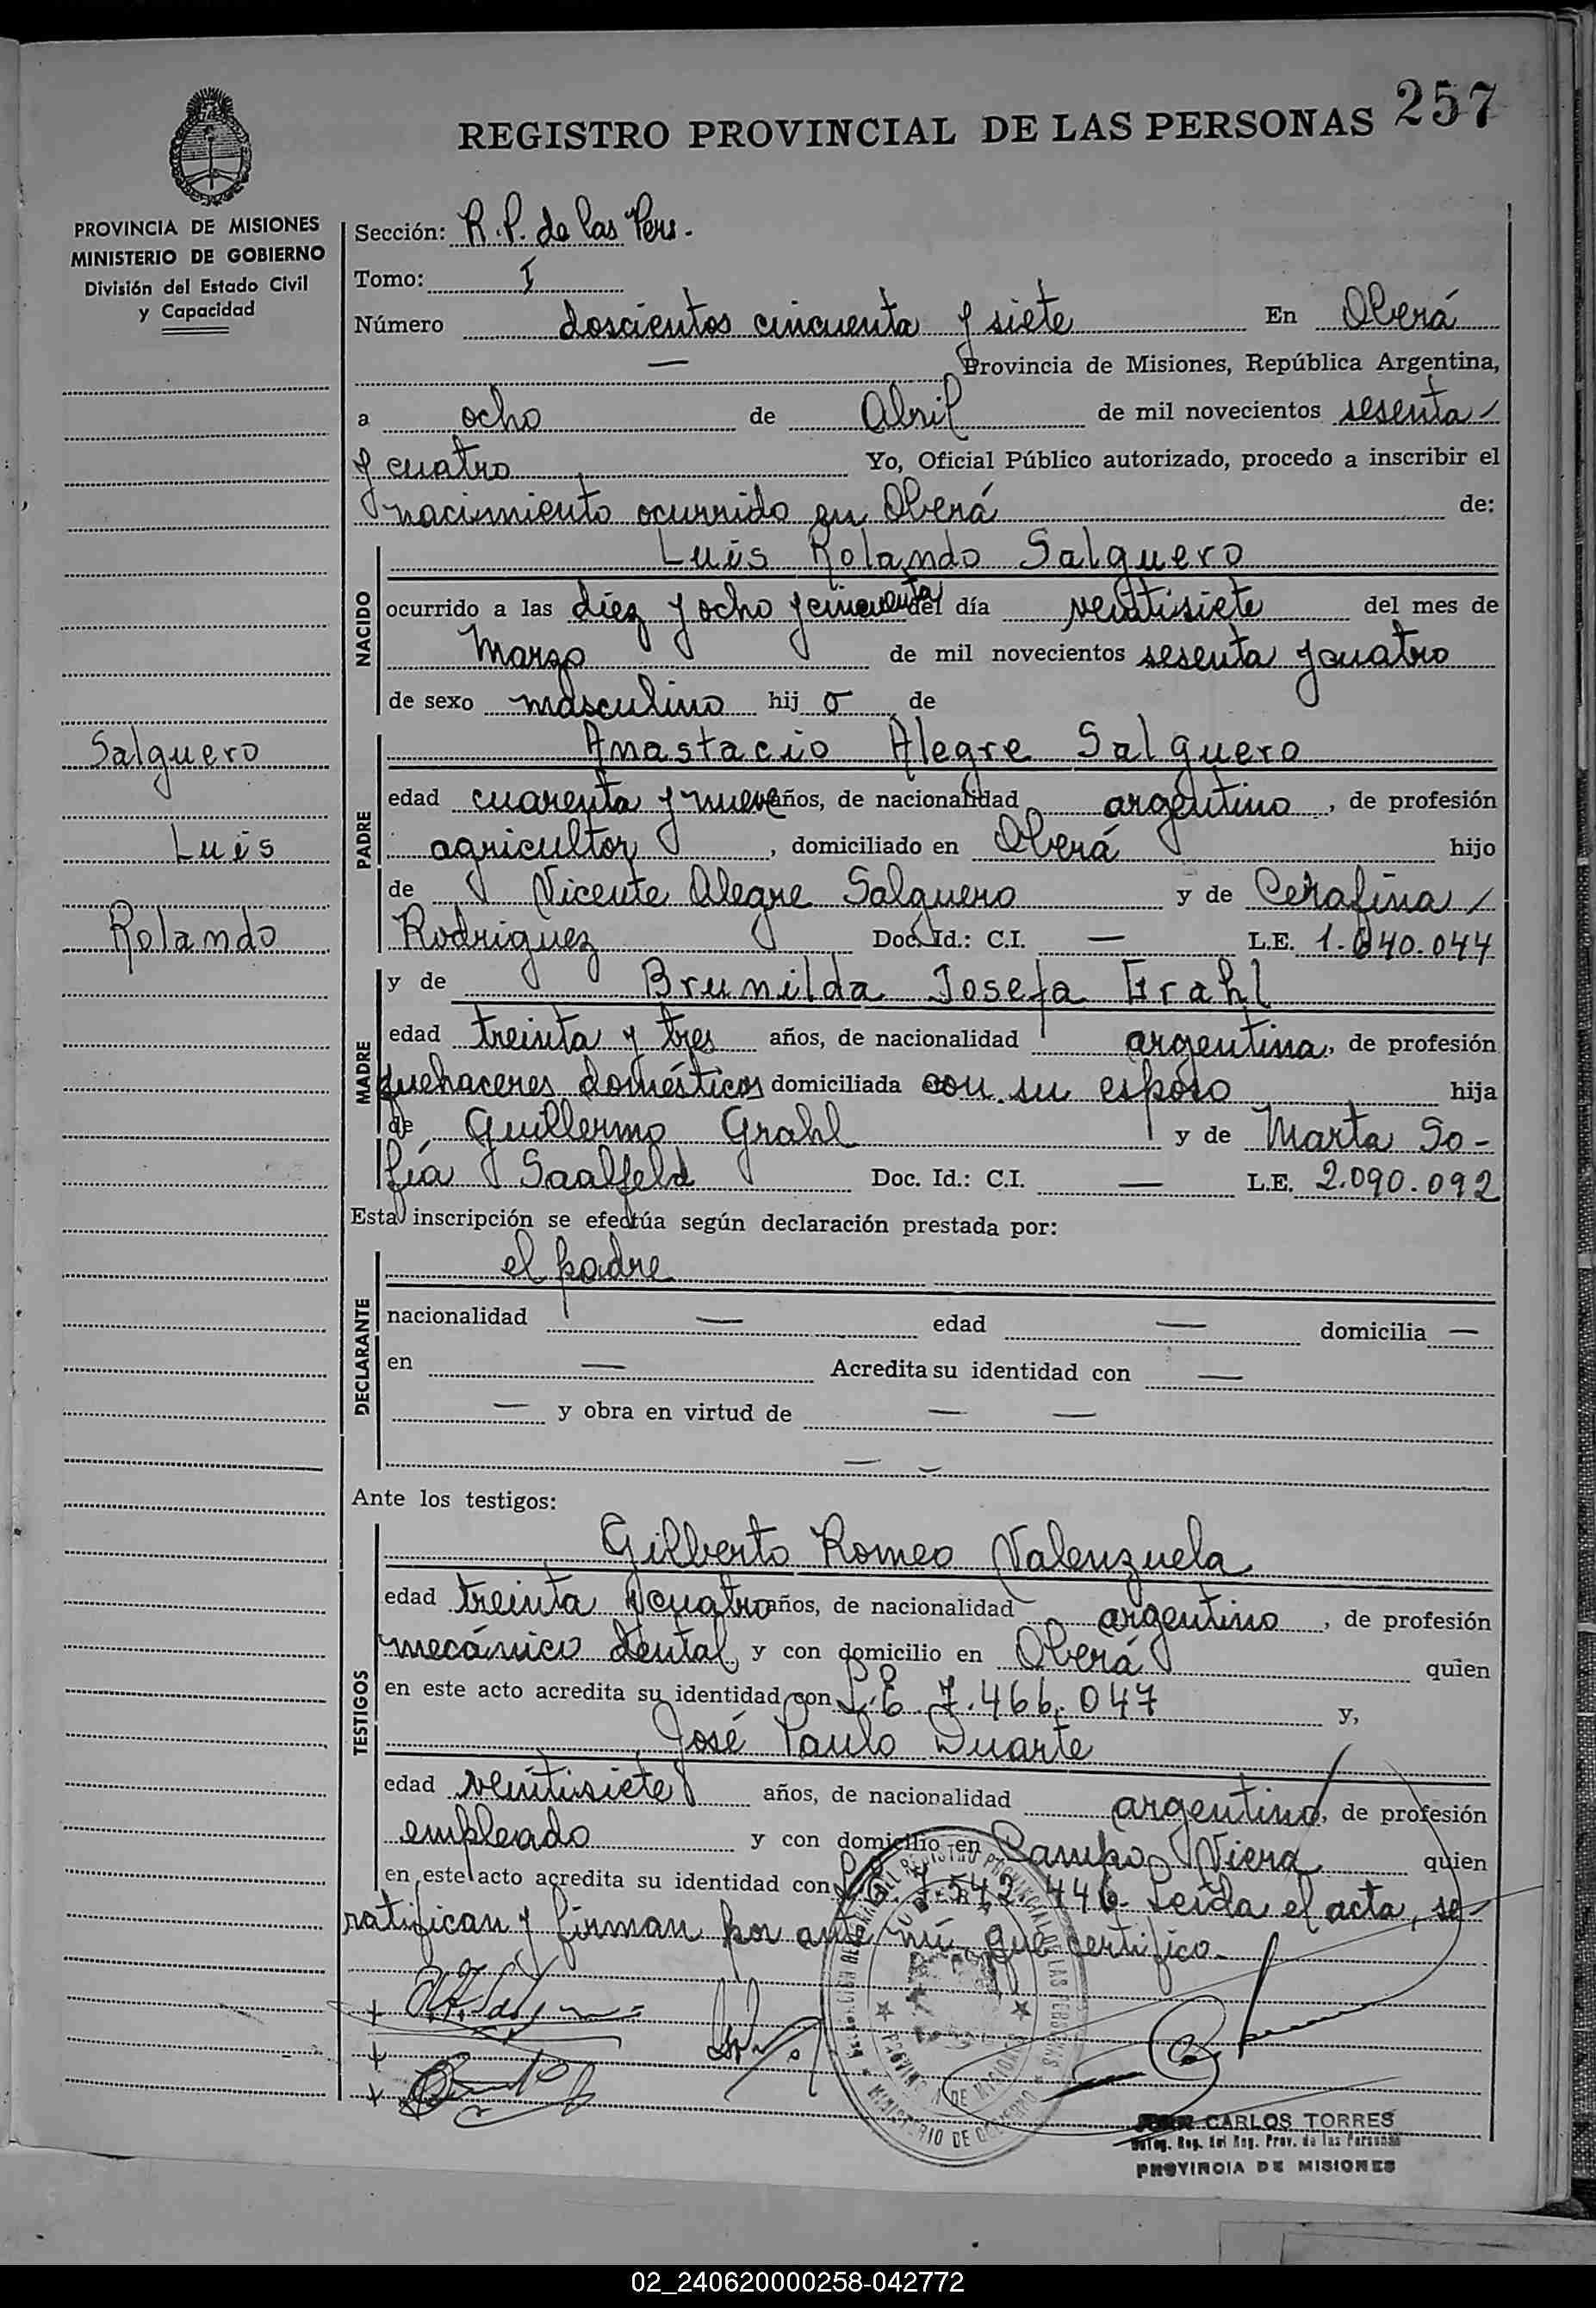 257
REGISTRO PROVINCIAL DE LAS PERSONAS
PROVINCIA DE MISIONES
MINISTERIO DE GOBIERNO
División del Estado Civil
y Capacidad
Salguero
Luis
Rolando
Sección: R.P. de las Pers.
Tomo: I
Número doscientos cincuenta y siete En Oberá
— Provincia de Misiones, República Argentina,
a ocho de Abril de mil novecientos sesenta
y cuatro Yo, Oficial Público autorizado, procedo a inscribir el
nacimiento ocurrido en Oberá de:
NACIDO
Luis Rolando Salguero
ocurrido a las diez y ocho y cincuenta del día veintisiete del mes de
Marzo de mil novecientos sesenta y cuatro
de sexo masculino hij o de
PADRE
Anastacio Alegre Salguero
edad cuarenta y nueve años, de nacionalidad argentino, de profesión
agricultor, domiciliado en Oberá hijo
de Vicente Alegre Salguero y de Cerafina
Rodriguez Doc. Id.: C.I. — L.E. 1. 40.044
MADRE
y de Brunilda Josefa Grahl
edad treinta y tres años, de nacionalidad argentina, de profesión
quehaceres domésticos domiciliada con su esposo hija
de Guillermo Grahl y de Marta So-
fía Saalfeld Doc. Id.: C.I. — L.E. 2.090.092
Esta inscripción se efectúa según declaración prestada por:
DECLARANTE
el padre
nacionalidad — edad — domicilia —
en — Acredita su identidad con —
— y obra en virtud de — —
— —
Ante los testigos:
TESTIGOS
Gilberto Romeo Valenzuela
edad treinta y cuatro años, de nacionalidad argentino, de profesión
mecánico dental y con domicilio en Oberá quien
en este acto acredita su identidad con L.E. 7.466.047 y,
José Paulo Duarte
edad veintisiete años, de nacionalidad argentino, de profesión
empleado y con domicilio en Campo Viera quien
en este acto acredita su identidad con L.E. 7.542.446. Leída el acta, se
ratifican y firman por ante mí que certifico.
CARLOS TORRES
PROVINCIA DE MISIONES
02_240620000258-042772